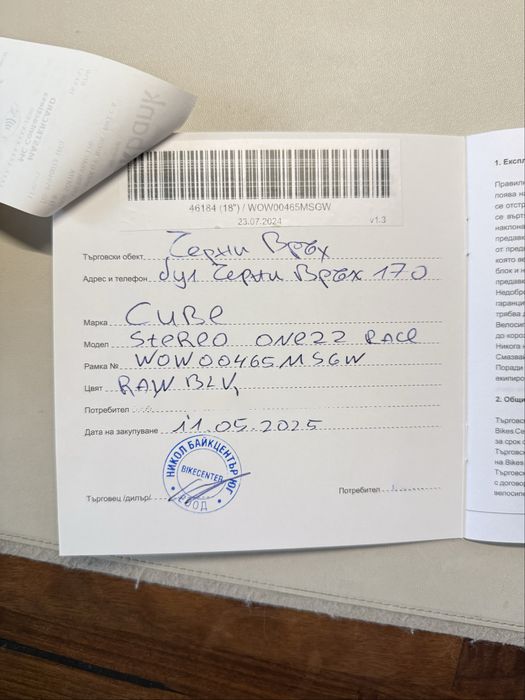 46184 (18") / WOW00465MSGW
23.07.2024 v1.3
Търговски обект. Черни Връх
Адрес и телефон. бул Черни Връх 170
Марка Cube
Модел Stereo ONE22 RACE
Рамка № WOW00465MSGW
Цвят RAW BLV,
Потребител
Дата на закупуване 11.05.2025
НИКОЛ БАЙКЦЕНТЪР ЮГ
BIKECENTER
ЕООД
Търговец /дилър/
Потребител
MASTERCARD
1. Експл
Правилн
се отстр
се върт
наклона
предавк
от предa
която ве
блок и н
предавк
Недобро
гаранци
трябва д
Велосип
до короз
Никога н
Смазван
Поради
екипиро
2. Общи
Търговс
Bikes Ce
за срок о
Търговс
на Bikes
Търговс
с договор
велосип